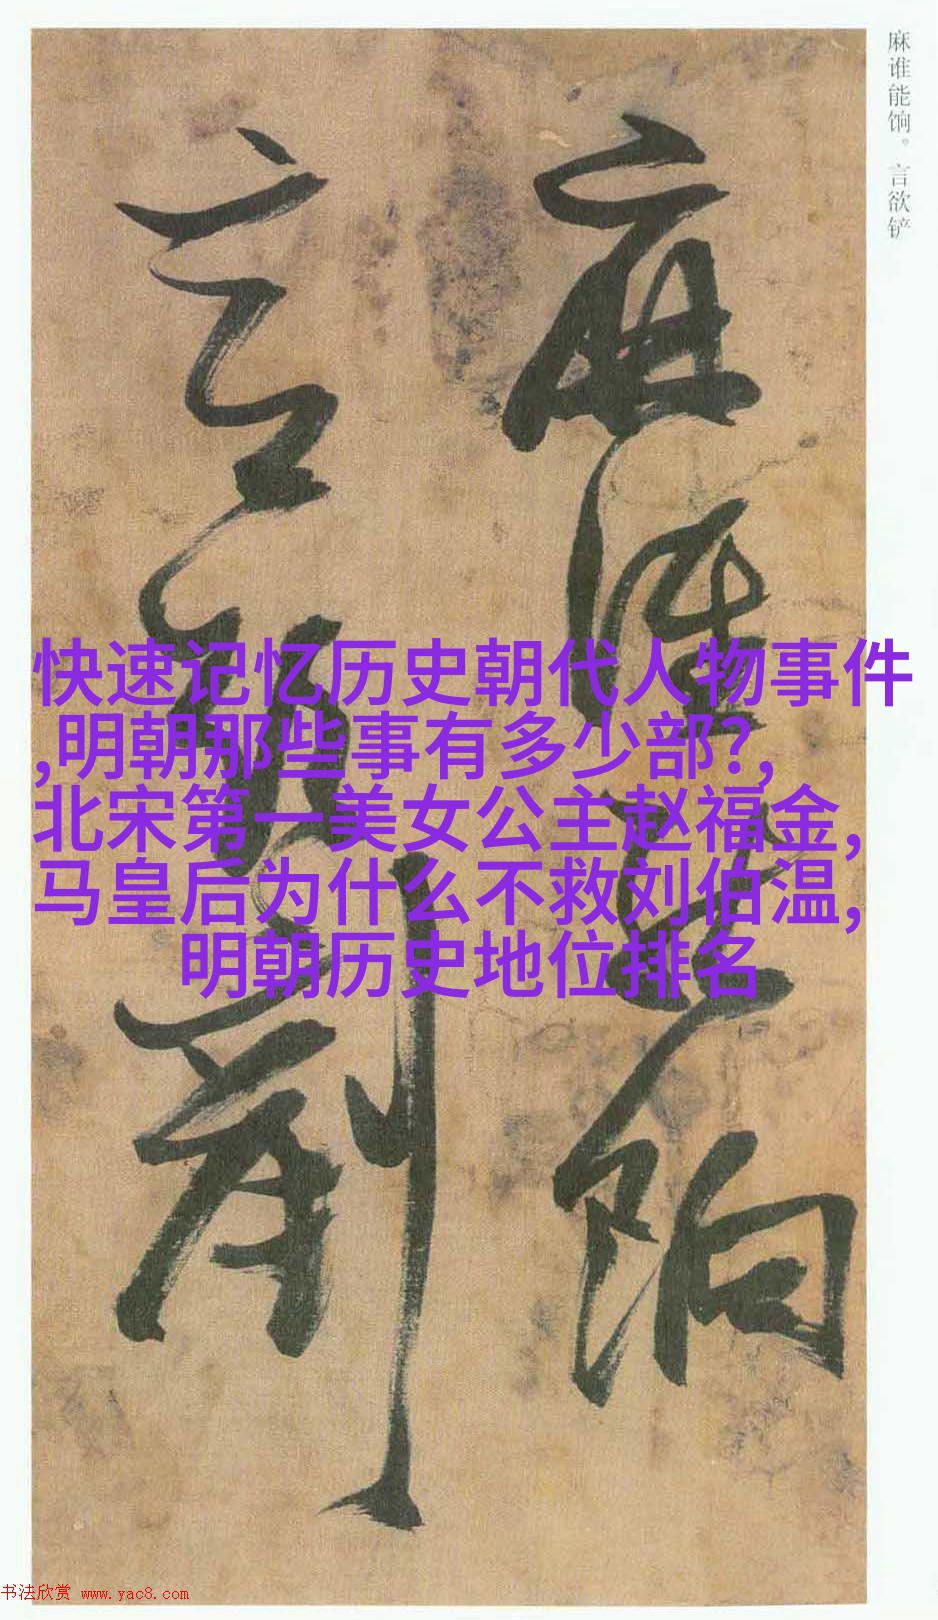 麻谁能饷。言欲铲
麻谁能饷
言欲铲
快速记忆历史朝代人物事件
,明朝那些事有多少部?,
北宋第一美女公主赵福金,
马皇后为什么不救刘伯温,
明朝历史地位排名
书法欣赏 www.yac8.com